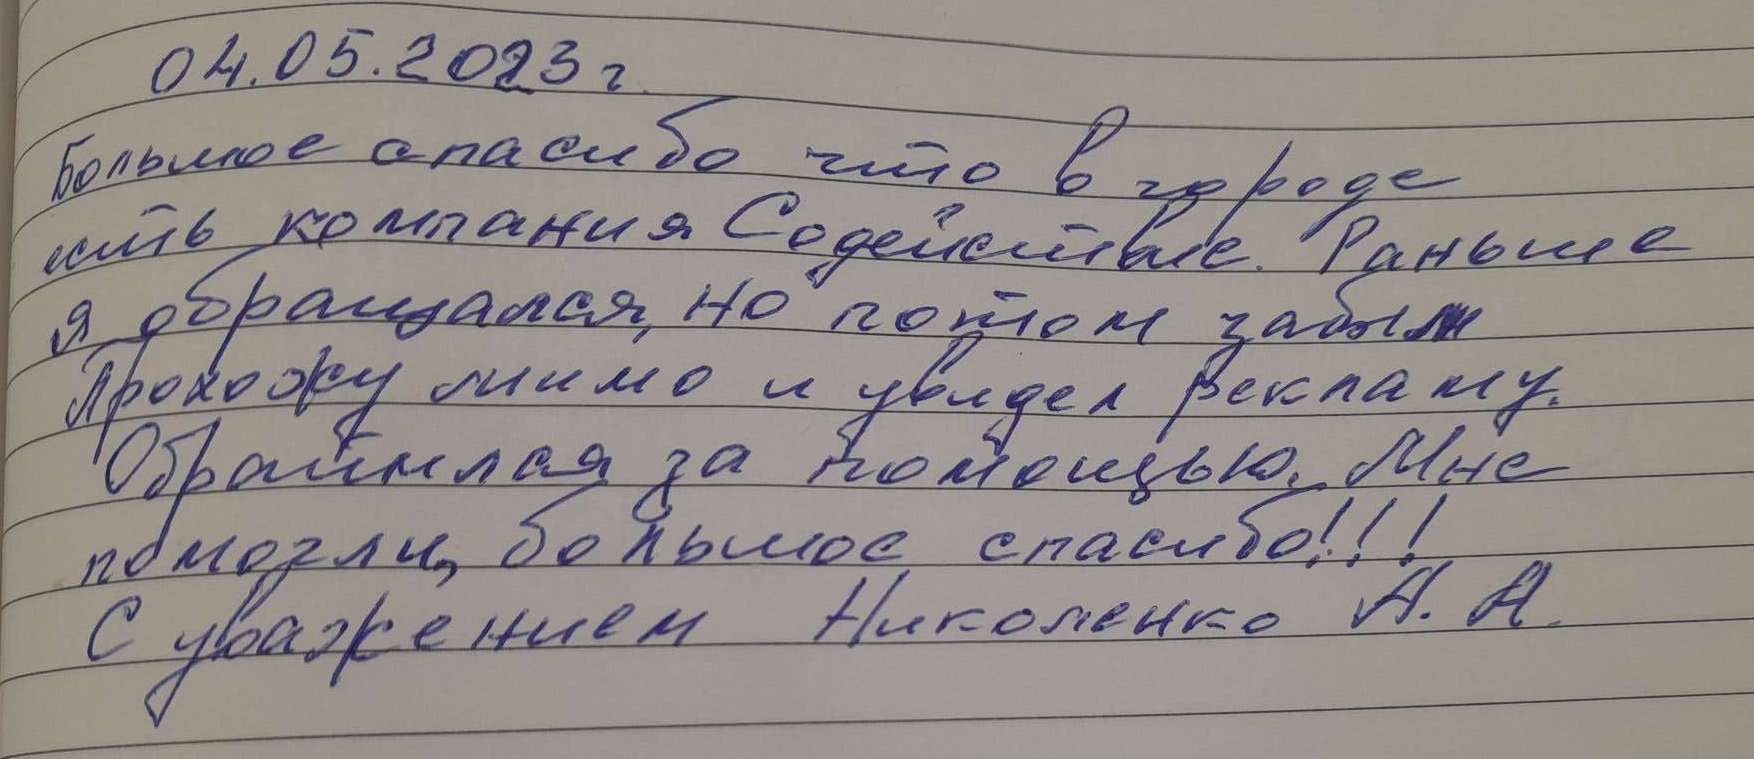 04.05.2023 г.
Большое спасибо что в городе
есть компания Содействие. Раньше
я обращался, но потом забыл
Прохожу мимо и увидел рекламу.
Обратился за помощью. Мне
помогли, большое спасибо!!!
С уважением Николенко А. А.